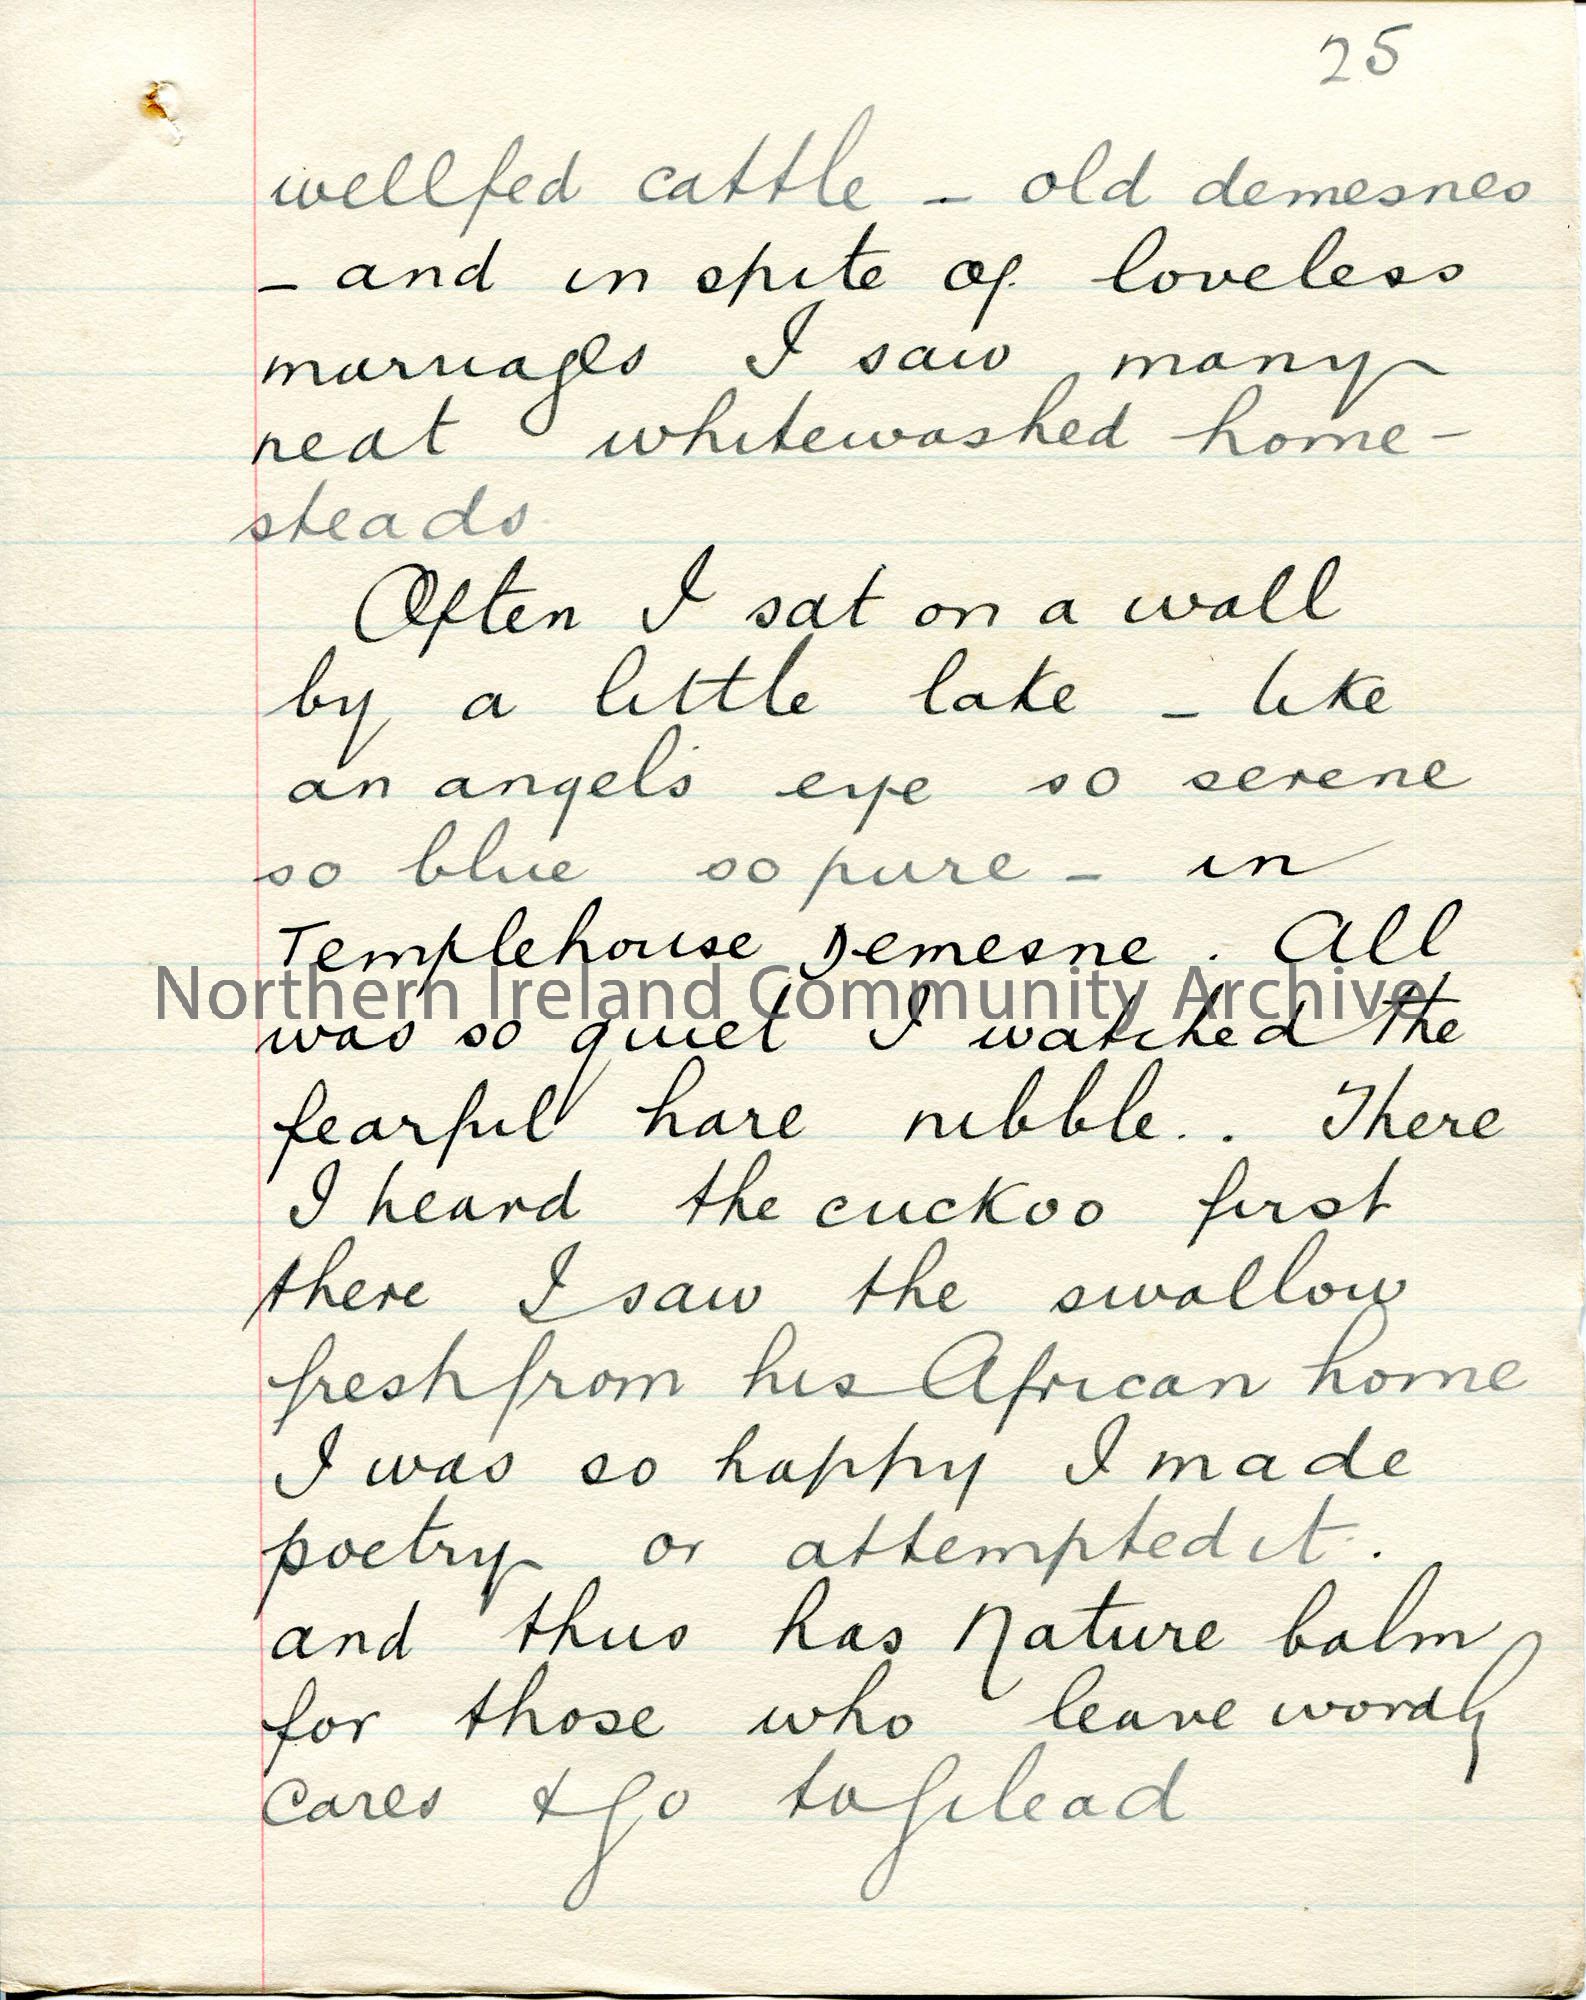 25
wellfed cattle - old demesnes
- and in spite of loveless
marriages I saw many
neat whitewashed home-
steads
Often I sat on a wall
by a little lake - like
an angel's eye so serene
so blue so pure - in
Templehouse Demesne. All
Northern Ireland Community Archive
was so quiet I watched the
fearful hare nibble.. There
I heard the cuckoo first
there I saw the swallow
fresh from his African home
I was so happy I made
poetry or attempted it.
and thus has Nature balm
for those who leave wordly
cares & go to Gilead